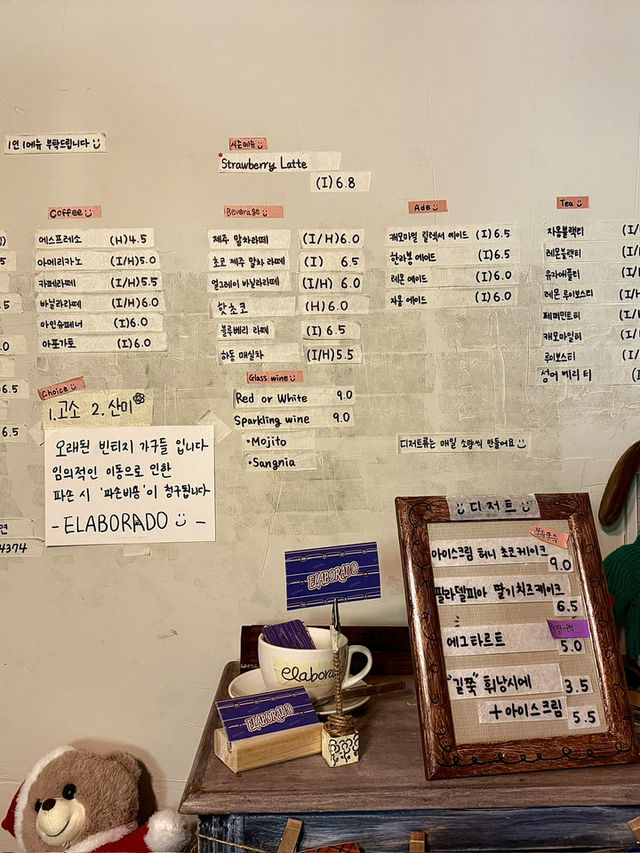 1인 1메뉴 부탁드립니다
시즌메뉴
Strawberry Latte
(I) 6.8
Coffee
에스프레소 (H) 4.5
아메리카노 (I/H) 5.0
카페라떼 (I/H) 5.5
바닐라라떼 (I/H) 6.0
아인슈페너 (I) 6.0
아포가토 (I) 6.0
Choice
1. 고소 2. 산미
오래된 빈티지 가구들 입니다
임의적인 이동으로 인한
파손 시 '파손비용'이 청구됩니다
- ELABORADO -
Beverage
제주 말차라떼 (I/H) 6.0
초코 제주 말차 라떼 (I) 6.5
얼그레이 바닐라라떼 (I/H) 6.0
핫초코 (H) 6.0
블루베리 라떼 (I) 6.5
하동 매실차 (I/H) 5.5
Glass wine
Red or White 9.0
Sparkling wine 9.0
• Mojito
• Sangria
Ade
캐모마일 릴렉서 에이드 (I) 6.5
한라봉 에이드 (I) 6.5
레몬 에이드 (I) 6.0
자몽 에이드 (I) 6.0
Tea
자몽블랙티 (I/
레몬블랙티 (I/
유자애플티 (I/
레몬 루이보스티 (I/
페퍼민트티 (I/
캐모마일티 (I/
루이보스티 (I/
베리 티 (I
디저트류는 매일 소량씩 만들어요
6.5
6.5
4374
디저트
아이스크림 허니 초코케이크
9.0
필라델피아 딸기치즈케이크
6.5
에그타르트
5.0
"길쭉" 휘낭시에 3.5
+ 아이스크림 5.5
ELABORADO
elabora
ELABORADO